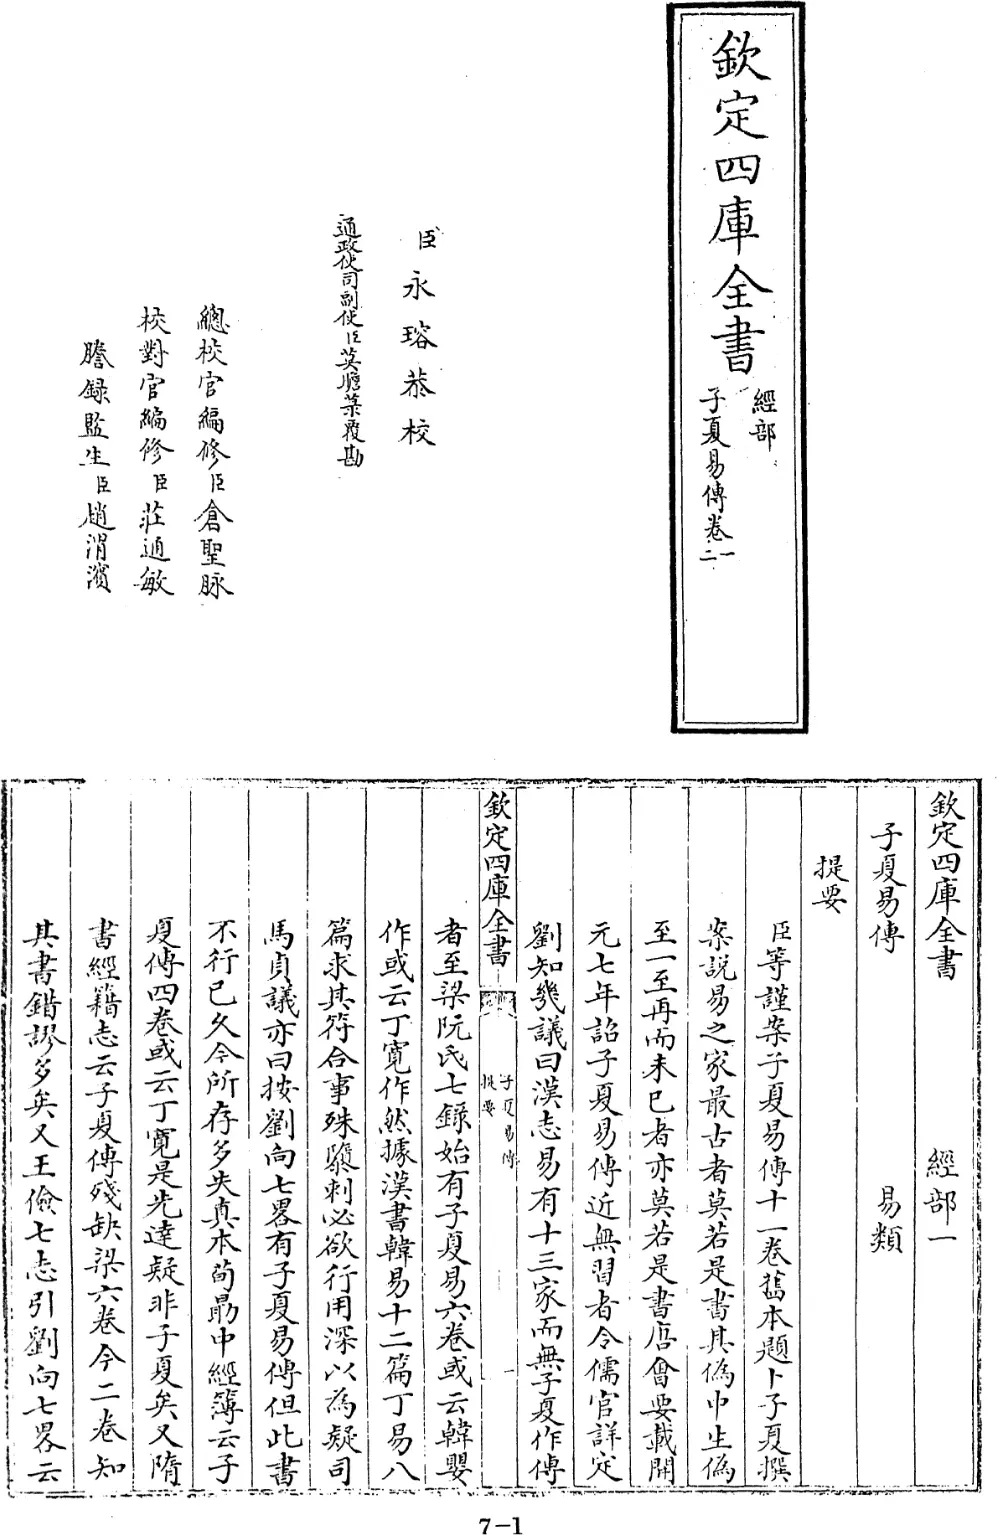 欽定四庫全書
經部
子夏易傳卷一二
臣永瑢恭校
通政使司副使臣莫瞻菉覆勘
總校官編修臣倉聖脉
校對官編修臣莊通敏
謄録監生臣趙渭濱
欽定四庫全書 經部一
子夏易傳 易類
提要
臣等謹案子夏易傳十一卷舊本題卜子夏撰
案說易之家最古者莫若是書其偽中生偽
至一至再而未已者亦莫若是書唐會要載開
元七年詔子夏易傳近無習者令儒官詳定
劉知幾議曰漢志易有十三家而無子夏作傳
欽定四庫全書 子夏易傳 提要 一
者至梁阮氏七錄始有子夏易六卷或云韓嬰
作或云丁寛作然據漢書韓易十二篇丁易八
篇求其符合事殊隳刺必欲行用深以為疑司
馬貞議亦曰按劉向七畧有子夏易傳但此書
不行已久今所存多失真本荀勗中經簿云子
夏傳四卷或云丁寛是先達疑非子夏矣又隋
書經籍志云子夏傳殘缺梁六卷今二卷知
其書錯謬多矣又王儉七志引劉向七畧云
7-1